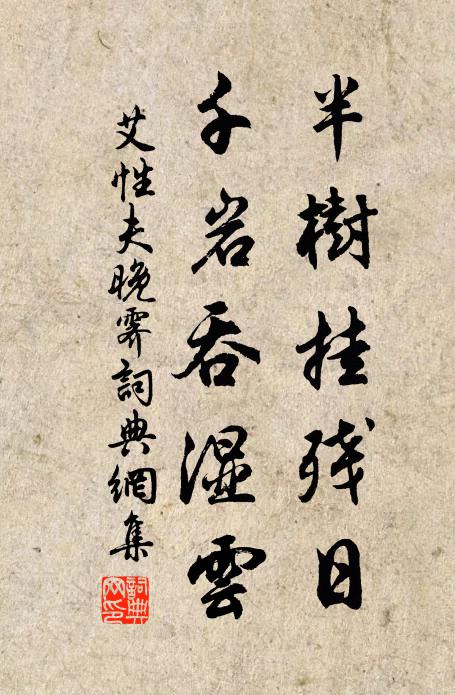 半樹挂残日
千岩吞湿雲
艾性夫晚霽詞典網集
詞典